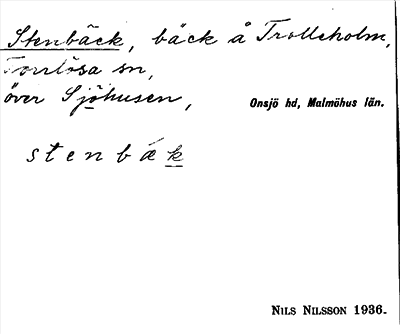 Stenbäck, bäck å Trolleholm,
Torrlösa sn,
över Sjöhusen,
Onsjö hd, Malmöhus län.
stenbæk
NILS NILSSON 1936.